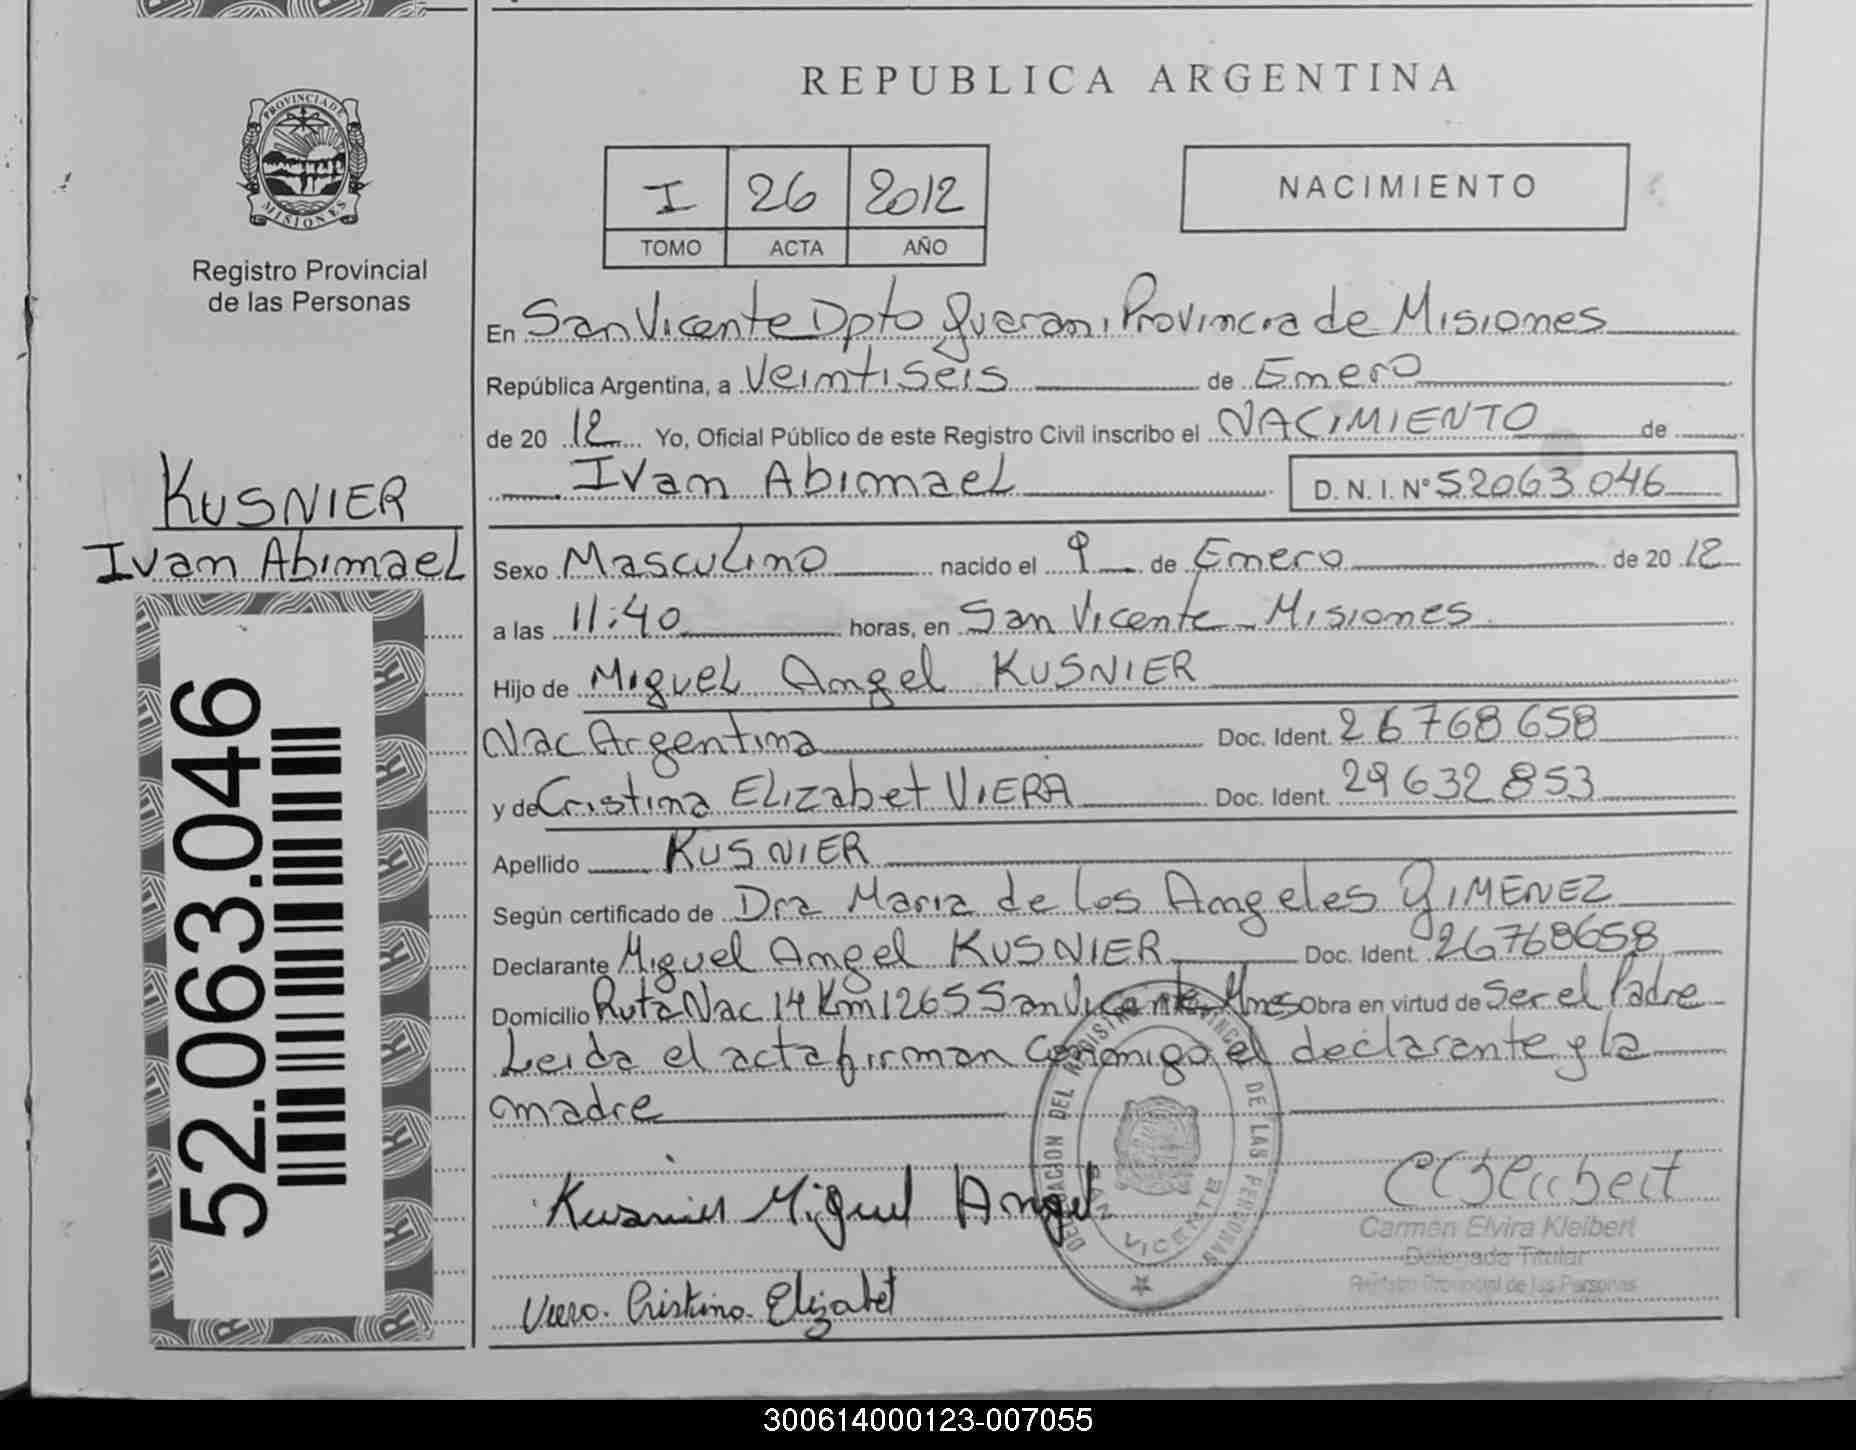 REPUBLICA ARGENTINA
PROVINCIA DE
MISIONES
Registro Provincial
de las Personas
I 26 2012
TOMO ACTA AÑO
NACIMIENTO
En San Vicente Dpto Guarani Provincia de Misiones
República Argentina, a Veintiseis de Enero
de 20 12 Yo, Oficial Público de este Registro Civil inscribo el NACIMIENTO de
Ivan Abimael D. N. I. Nº 52063046
KUSNIER
Ivan Abimael
52.063.046
Sexo Masculino nacido el 9 de Enero de 20 12
a las 11:40 horas, en San Vicente - Misiones
Hijo de Miguel Angel KUSNIER
Nac Argentina Doc. Ident. 26768658
y de Cristina Elizabet VIERA Doc. Ident. 29632853
Apellido KUSNIER
Según certificado de Dra Maria de los Angeles GIMENEZ
Declarante Miguel Angel KUSNIER Doc. Ident. 26768658
Domicilio Ruta Nac 14 Km 1265 San Vicente Mnes Obra en virtud de Ser el Padre
Leida el acta firman conmigo el declarante y la
madre
DELEGACION DEL REGISTRO PROVINCIAL DE LAS PERSONAS
SAN VICENTE
Kusnier Miguel Angel
Carmen Elvira Kleibert
Delegada Titular
Registro Provincial de las Personas
Viera. Cristina. Elizabet
300614000123-007055